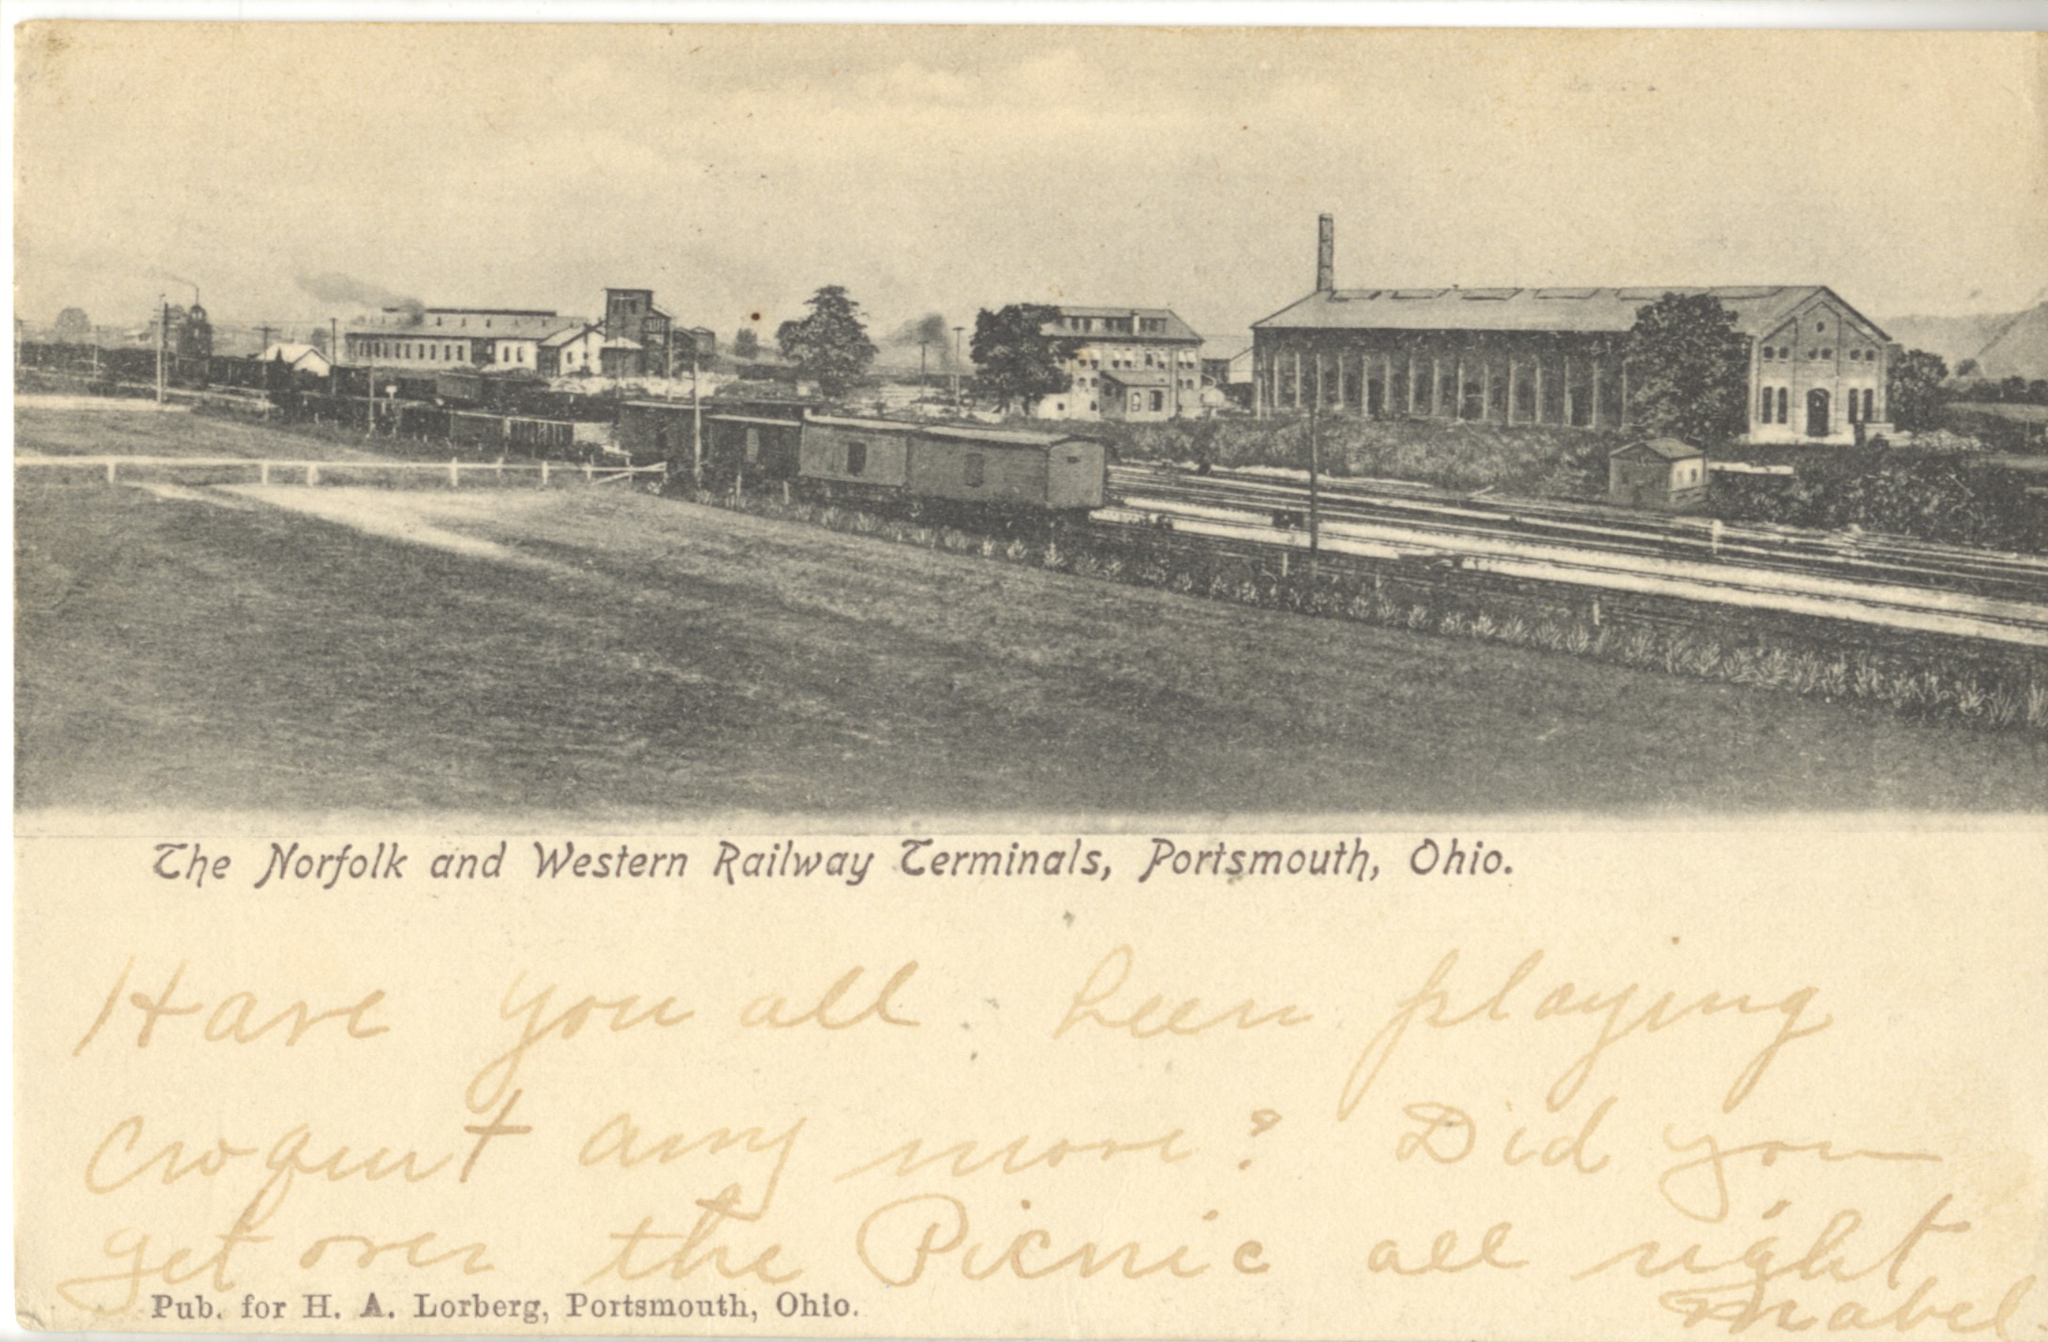 The Norfolk and Western Railway Terminals, Portsmouth, Ohio.
Have you all been playing
croquet any more? Did you
get over the Picnic all right
Mabel.
Pub. for H. A. Lorberg, Portsmouth, Ohio.